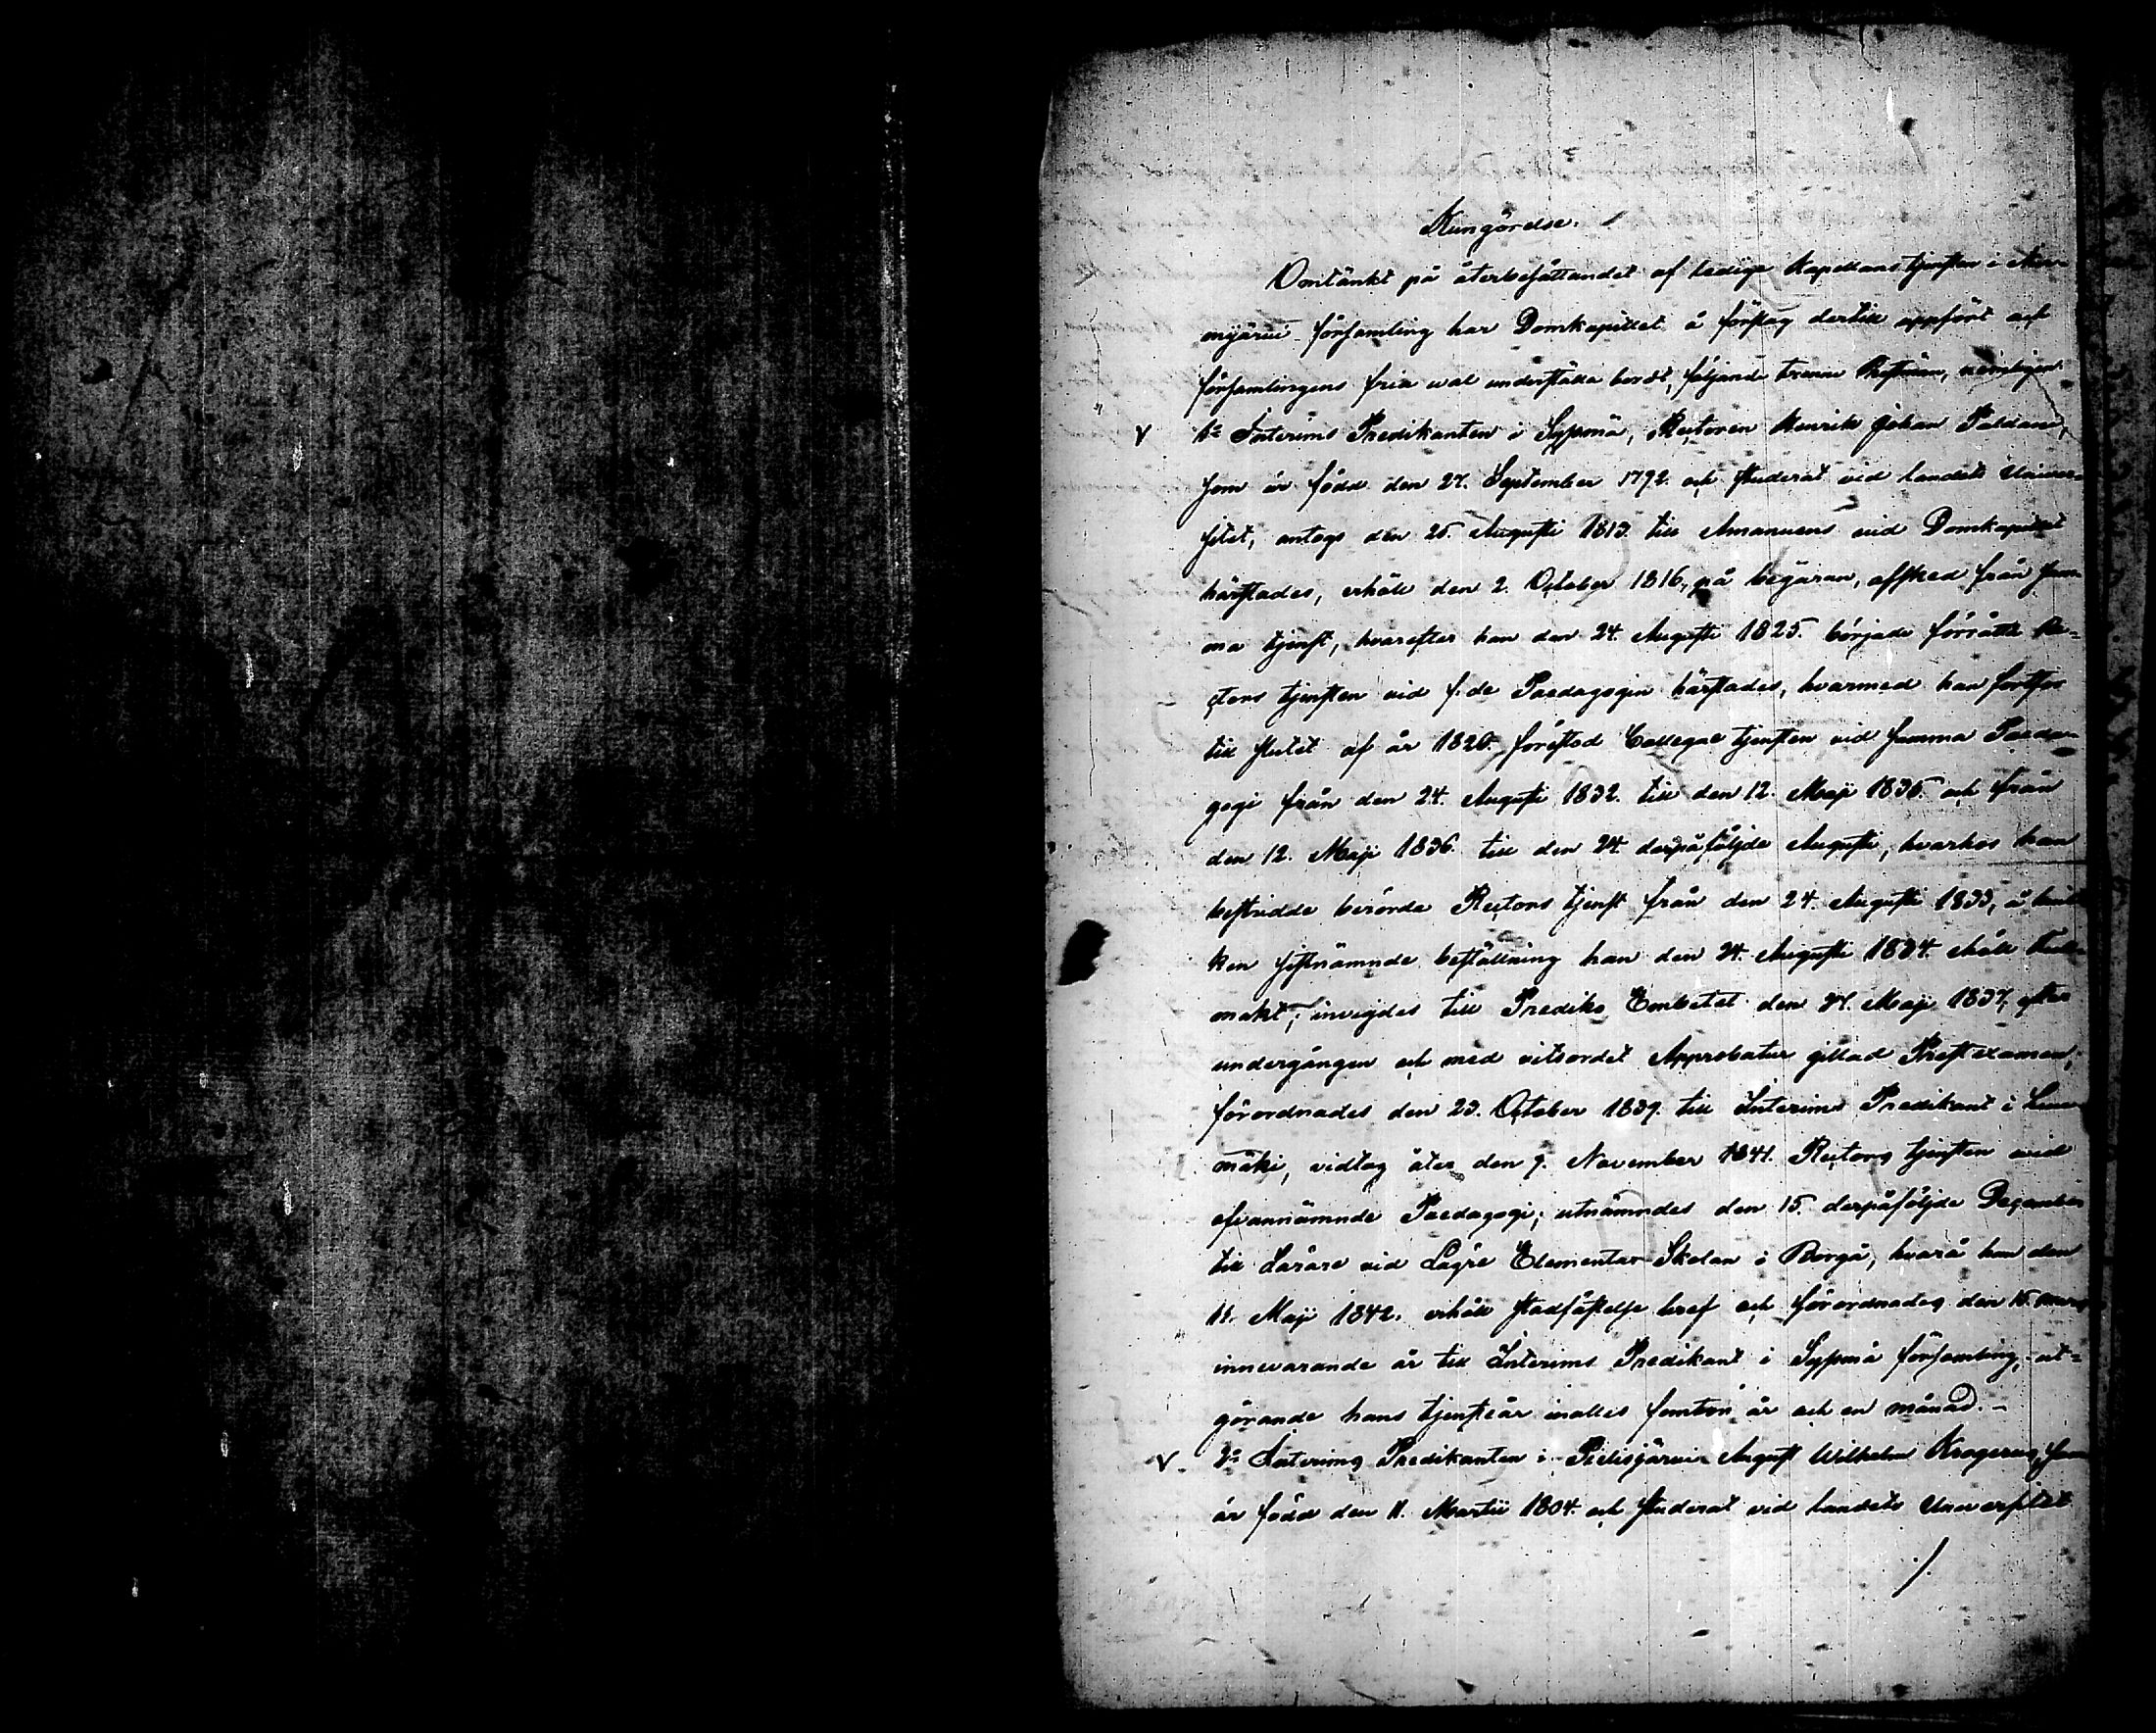 Kungörelse.
Omtänkt på återbesättandet af lediga Kapellans tjensten i
mijärvi församling har Domkapitlet å förslag dertill uppfört och
församlingens fria val underställa bordt, följande trenne Prestmän, nemligen
1o Interims Predikanten i Sysmä, Rectoren Henrik Johan Paldani,
som är född den 27. September 1792. och studerat vid landets Univer-
sitet, antogs den 25. Augusti 1813. till Amanuens vid Domkapitlet
härstädes, erhöll den 2. October 1816, på begäran, afsked från sam-
ma tjenst, hvarefter han den 24. Augusti 1825. började förrätta Re-
ctors tjensten vid f. de Paedagogin härstädes, hvarmed han fortfor
till slutet af år 1826. förestod Collegae tjensten vid samma Paeda-
gogi från den 24. Augusti 1832. till den 12. Maji 1835. och från
den 12. Maji 1836. till den 24. derpåföljde Augusti, hvarhos han
bestridde berörde Rectors tjenst från den 24. Augusti 1833, å hvil-
ken sistnämnde beställning han den 24. Augusti 1834. erhöll Full-
makt; invigdes till Prediko Embetet den 27. Maji 1837, efter
undergången och med vitsordet Approbatur gillad Prestexamen,
förordnades den 23. October 1839. till Interims Predikant i
mäki, vidtog åter den 9. November 1841. Rectors tjensten vid
ofvannämnde Paedagogi; utnämndes den 15. derpåföljde December
till Lärare vid Lägre Elementar Skolan i Borgå, hvarå han den
11. Maji 1842. erhöll stadfästelse bref och förordnades den 15.
innevarande år till Interims Predikant i Sysmä församling, ut-
görande hans tjensteår inalles femton år och en månad.-
2o Interims Predikanten i Pielisjärvi August Wilhelm Krogerus, som
är född den 11. Martii 1804. och studerat vid landets Universitet
./.